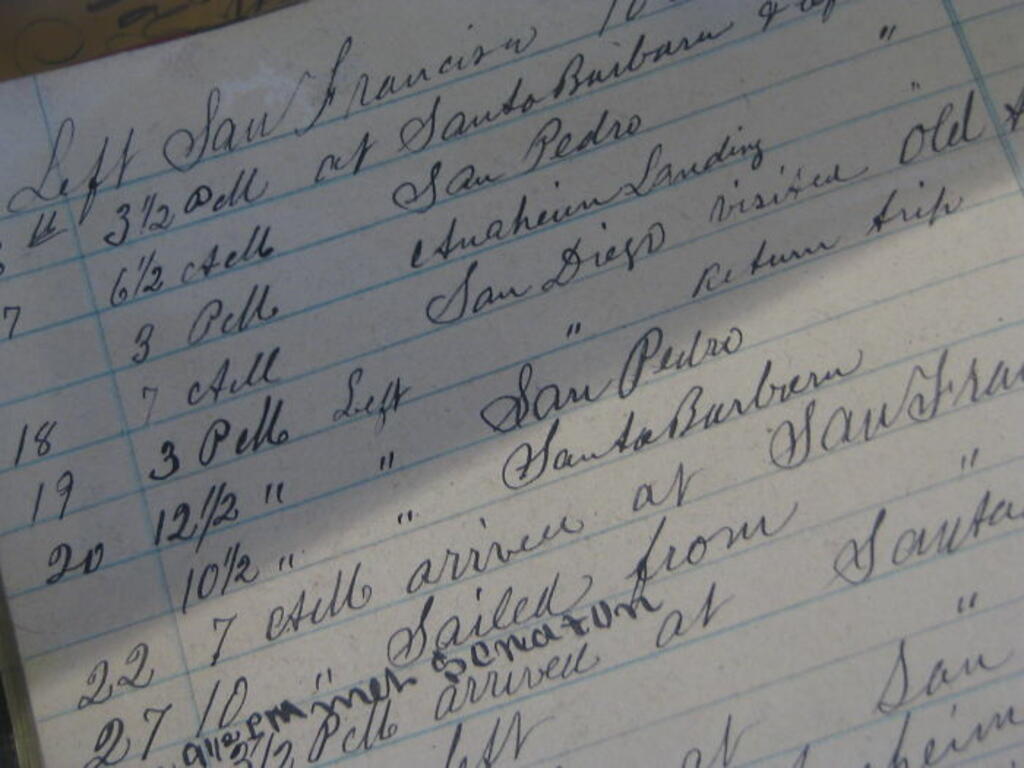 Left San Francisco 10
" 3 1/2 PM at Santa Barbara
6 1/2 AM San Pedro "
7 3 PM Anaheim Landing "
7 AM San Diego visited Old
18 3 PM Left " return trip
19 12 1/2 " " San Pedro
20 10 1/2 " " Santa Barbara
22 7 AM arrived at San Fra
27 10 " Sailed from "
9 1/2 PM met Senator
3 1/2 PM arrived at Santa
left "
at San
heim